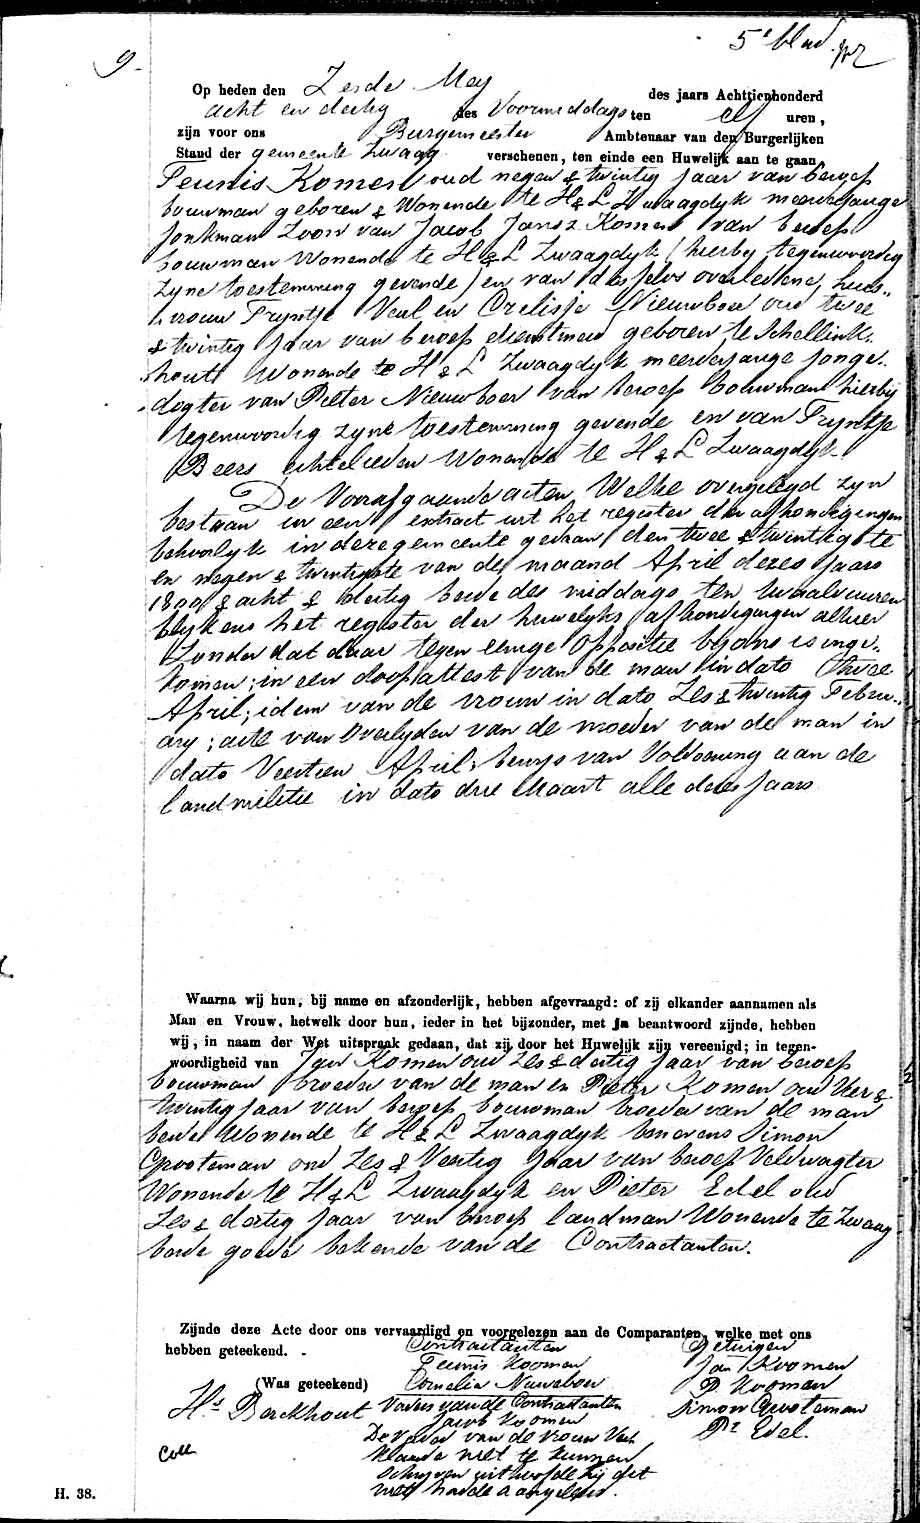 5e blad
9.
Op heden den Zesde Mey des jaars Achttienhonderd
acht en dertig des Voormiddags ten elf uren,
zijn voor ons Burgemeester Ambtenaar van den Burgerlijken
Stand der gemeente Zwaag verschenen, ten einde een Huwelijk aan te gaan,
Teunis Komen oud negen & twintig Jaar van beroep
bouwman geboren & Wonende te H & L Zwaagdyk meerderjarige
Jonkman Zoon van Jacob Jansz Komen van beroep
bouwman Wonende te H & L Zwaagdyk (hierby tegenwoordig
zyne toestemming gevende) en van deszelvs overledene huis-
vrouw Tryntje Veul en Crelisje Nieuwboer oud twee
& twintig Jaar van beroep dienstmeid geboren te Schellink-
hout Wonende te H & L Zwaagdyk meerderjarige Jonge-
dogter van Pieter Nieuwboer van beroep bouwman hierby
tegenwoordig zyne toestemming gevende en van Tryntje
Beers echtelieden Wonende te H & L Zwaagdyk
De Voorafgaande acten Welke overgelegd zyn
bestaan in een extract uit het register der afkondigingen
behoorlyk in deze gemeente gedaan den twee & twintigste
en negen & twintigste van de maand April dezes Jaars
1800 & acht & dertig beide des middags ten twaalf uuren
blykens het register der huwelyks afkondigingen alhier
Zonder dat daar tegen eenige Oppositie by ons is inge-
komen; in een doopattest van de man in dato Twee
April; idem van de vrouw in dato Zes & twintig Febru-
ary; acte van Overlyden van de moeder van de man in
dato Veertien April; bewys van Voldoening aan de
landmilitie in dato drie Maart alle dezes Jaars
Waarna wij hun, bij name en afzonderlijk, hebben afgevraagd: of zij elkander aannamen als
Man en Vrouw, hetwelk door hun, ieder in het bijzonder, met ja beantwoord zijnde, hebben
wij, in naam der Wet uitspraak gedaan, dat zij door het Huwelijk zijn vereenigd; in tegen-
woordigheid van Jan Komen oud Zes & dertig Jaar van beroep
bouwman broeder van de man en Pieter Komen oud Vier &
twintig Jaar van beroep bouwman broeder van de man
beide Wonende te H & L Zwaagdyk benevens Simon
Grooteman oud Zes & Veertig Jaar van beroep Veldwagter
Wonende te H & L Zwaagdyk en Pieter Edel oud
Zes & dertig Jaar van beroep landman Wonende te Zwaag
beide goede bekende van de Contractanten.
Zijnde deze Acte door ons vervaardigd en voorgelezen aan de Comparanten, welke met ons
hebben geteekend. Contractanten Getuigen
Teunis Kooman Jan Koomen
(Was geteekend) Cornelia Nieuwboer P. Kooman
Hs Berckhout Vaders van de Contractanten Simon Grooteman
Jacob Koomen Pr Edel.
De Vader van de vrouw Ver-
Coll klaarde niet te kunnen
Schryven uit hoofde hij dit
niet hadde aangeleerd.
H. 38.